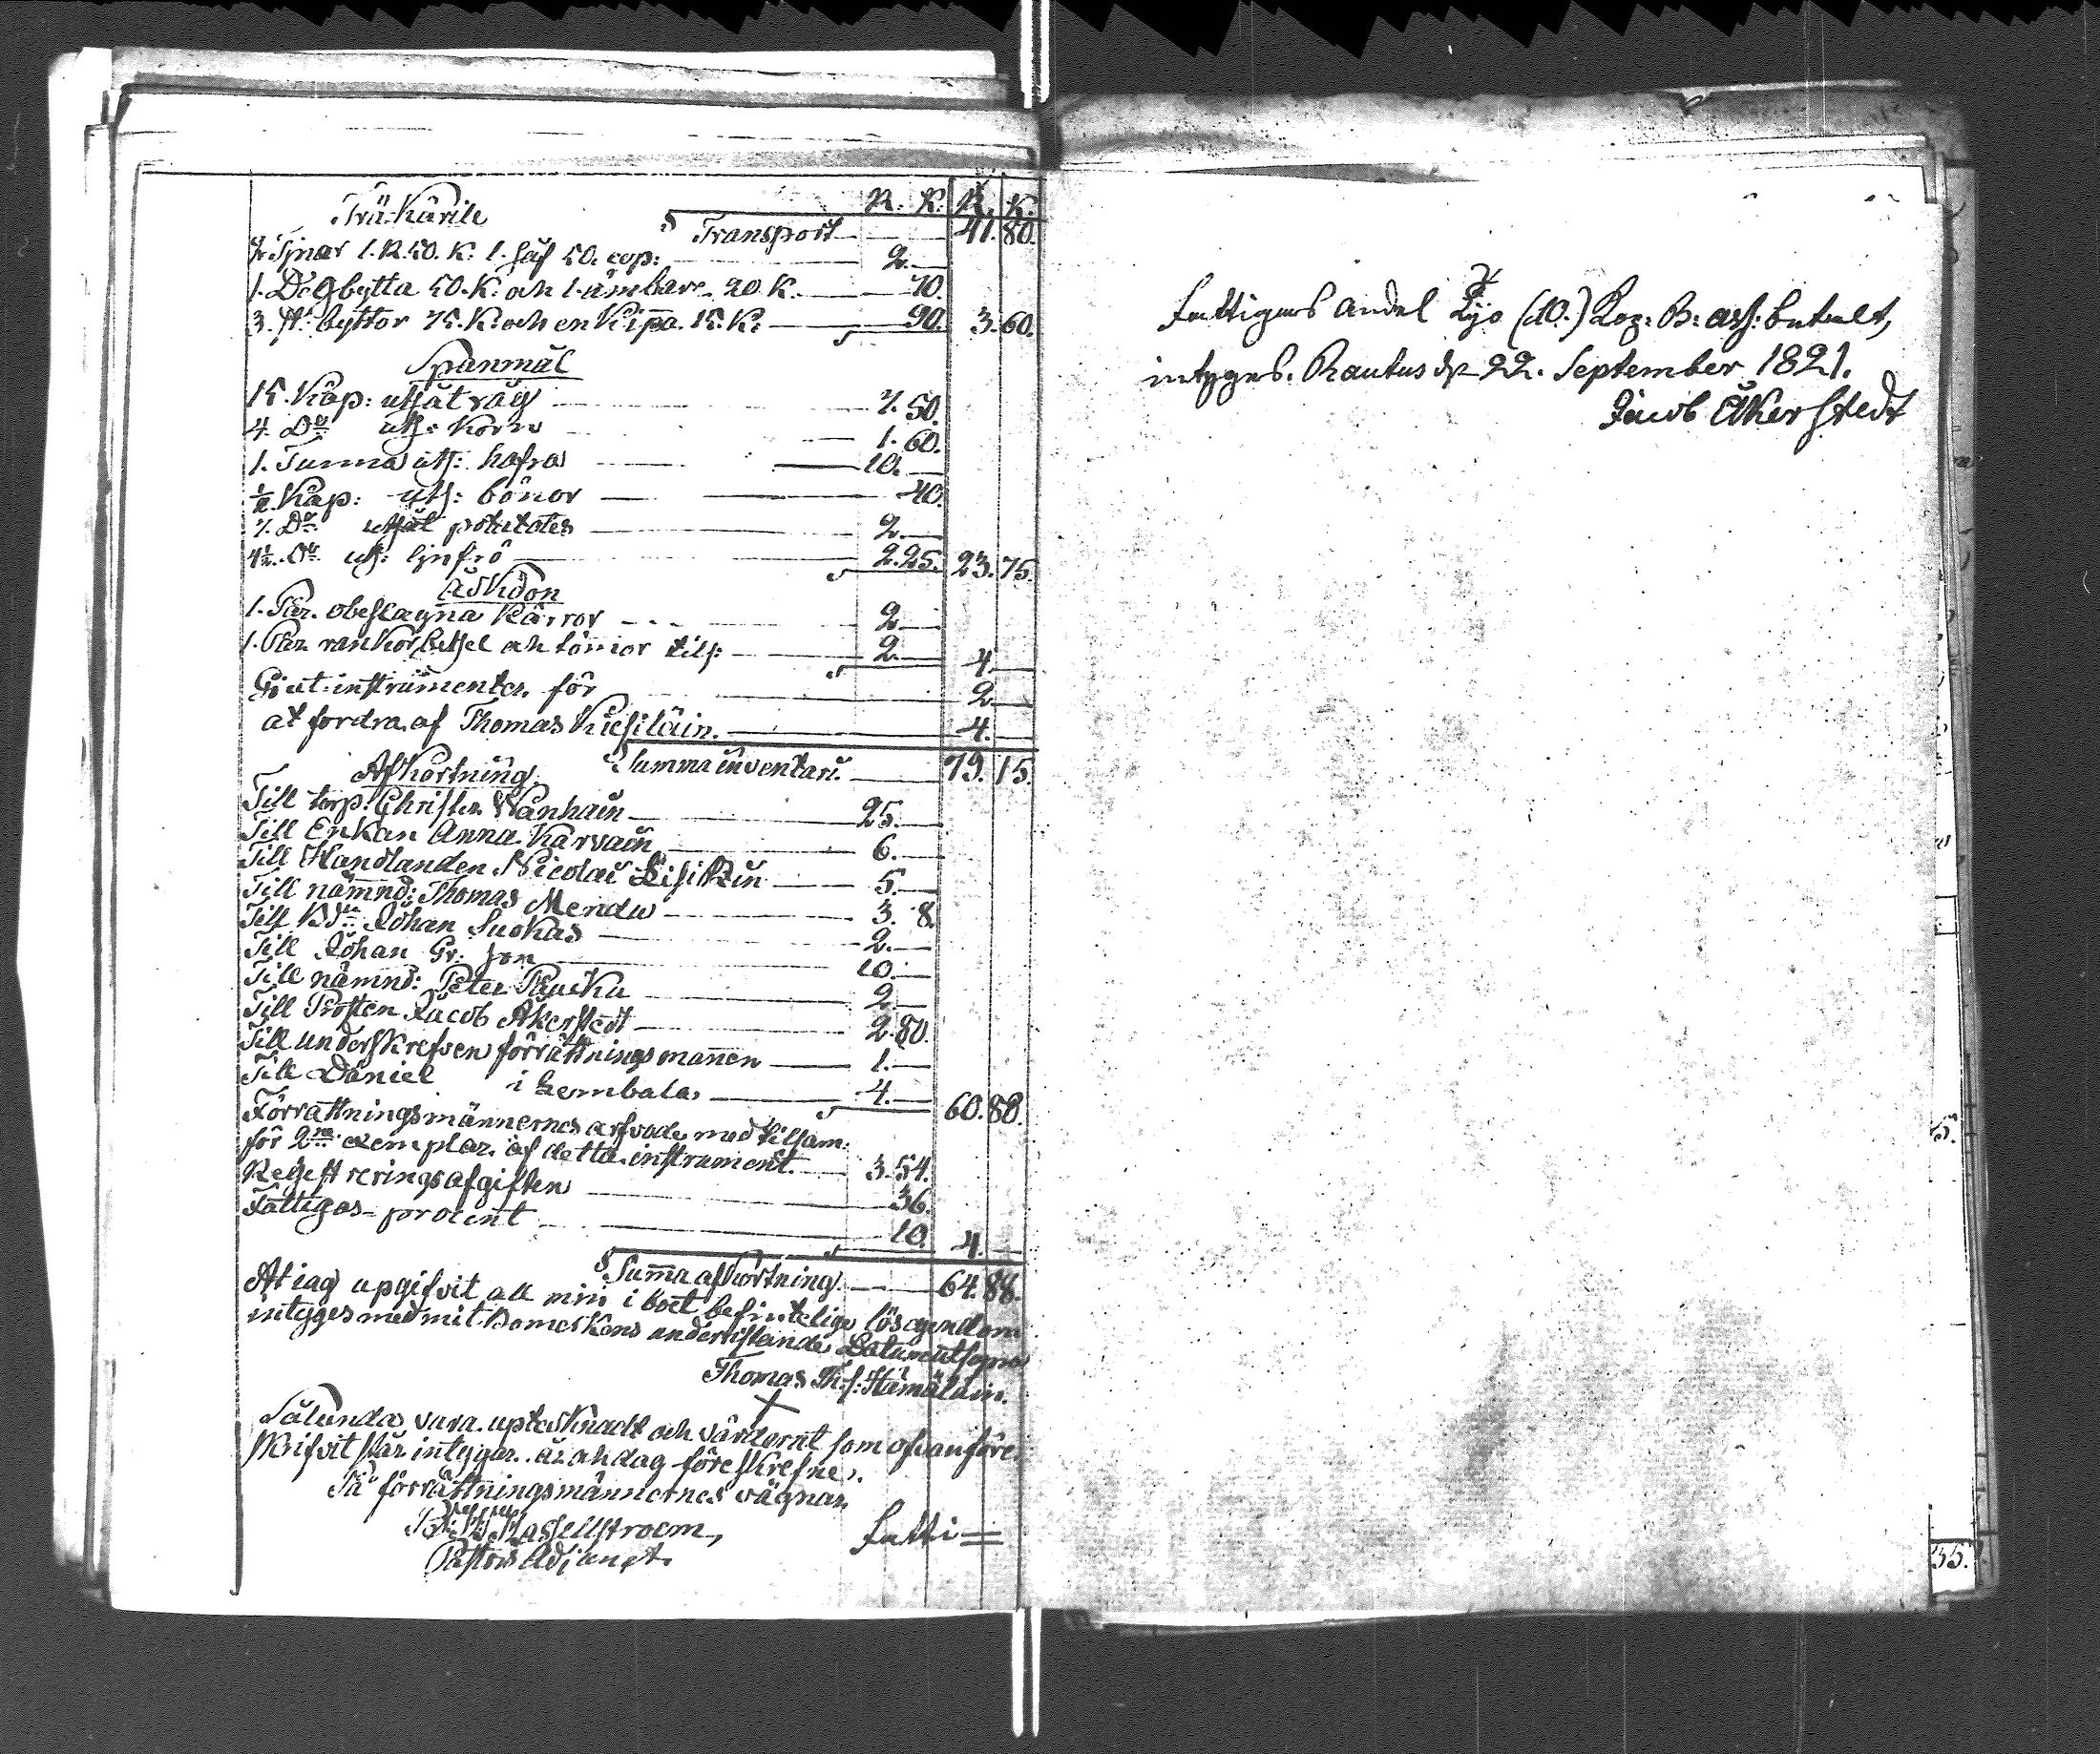 R. K. R. K.
Trä-Kärile
Transport 41. 80.
2. Tjnar 1. R. 50. K: 1. Såf 50. cop: 2.
1. Degbytta 50. K: och 1. ämbare 20 K. 70.
3. st: byttor 75. K: och en Kipa. 15. K: 90. 3. 60.
Spanmål
15. Kap: utsåt råg 7. 50.
4. Do uts: Korn 1. 60.
1. Tunna uts: hafra 10.
1/2 Kap: uts: bönor 40.
Do utsåt potatotes 2.
4½. Do uts: linfrö 2. 25. 23. 75.
åkdon
1. Par. obeslagna Kärror 2.
1. Par rankor, betsel och tömor tils: 2. 4.
Giut-instrumenter för 2.
at fordra af Thomas 4.
Summa inventarii 79. 15.
Afkortning
Till torp: Christer Wanhain 25.
Till Enkan Anna Karvain 6.
Till Handlanden Nicolai 5.
Till nämnd: Thomas Mendu 3. 8.
Till Bdn Johan Suokas 2.
Till Johan Gr: son 10.
Till nämnd: Peter Paucku 2.
Till Prosten Jacob Åkerstedt 2. 80.
Till underskrefven förrättningsmannen 1.
Till Daniel i Lembala 4. 60. 88.
Förrättningsmännernes arfvode med tilsam:
för 2ne exemplar af detta instrument. 3. 54.
Registreringsafgiften 36.
Fattigas-procent 10. 4.
Summa afkortning 64. 88.
At iag upgifvit all min i boet befinteliga lösegendom
intyges med mit Bomerkens undersättande
Thomas Th. s: Hämäläin.
X
Sålunda vara upteknadt och värderat som ofvanföre
skrifvit står intygar. år och dag föreskrefne.
På förrättningsmännernes vägnar
Hassellstroem,
Pastors Adjunct.
Fatti=
Fattigas andel Tijo (10.) Kop: B: ass: betalt,
intygas. Rautus d. 22. September 1821.
Jacob Åkerstedt
55.